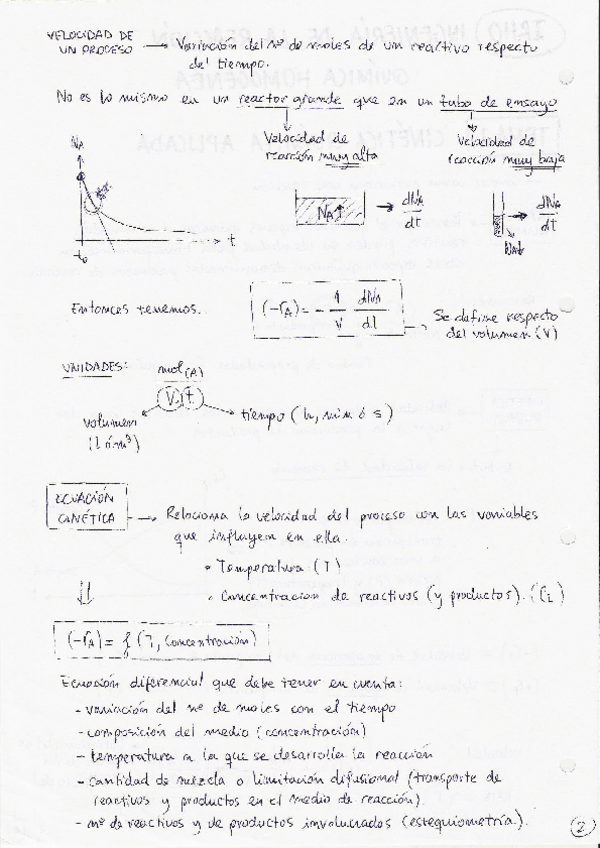 VELOCIDAD DE
UN PROCESO → Variación del nº de moles de un reactivo respecto
del tiempo.
No es lo mismo en un reactor grande que en un tubo de ensayo
Velocidad de
reacción muy alta
Velocidad de
reacción muy baja
NA
t
t₀
NA↑ → dNA/dt
→ dNA/dt
Entonces tenemos.
(-rA) = - 1/V dNA/dt
Se define respecto
del volumen (V)
UNIDADES:
mol (A)
V·t
volumen
(l ó m³)
tiempo (h, min ó s)
ECUACIÓN
CINÉTICA → Relaciona la velocidad del proceso con las variables
que influyen en ella.
• Temperatura (T)
• Concentracion de reactivos (y productos). (Ci)
(-rA) = f (T, concentración)
Ecuación diferencial que debe tener en cuenta:
- variación del nº de moles con el tiempo
- composición del medio (concentración)
- temperatura a la que se desarrolla la reacción
- cantidad de mezcla o limitación difusional (transporte de
reactivos y productos en el medio de reacción).
- nº de reactivos y de productos involucrados (estequiometría).
2